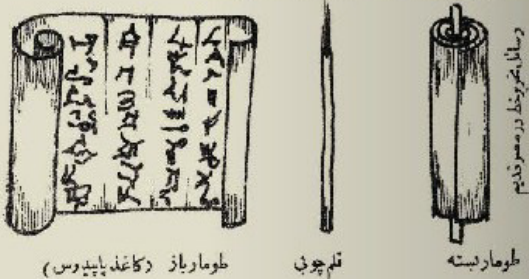 وسائل تحریر و خط در مصر قدیم
طومار بسته
قلم چوبی
طومار باز (کاغذ پاپیروس)